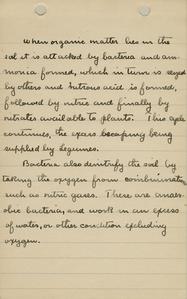 When organic matter lies in the
soil it is attacked by bacteria and am-
monia formed, which in turn is seized
by others and nitrous acid is formed,
followed by nitric and finally by
nitrates available to plants. This cycle
continues, the excess escaping being
supplied by legumes.
Bacteria also denitrify the soil by
taking the oxygen from combinations
such as nitric gases. These are anaer-
obic bacteria, and work in an excess
of water, or other condition excluding
oxygen.